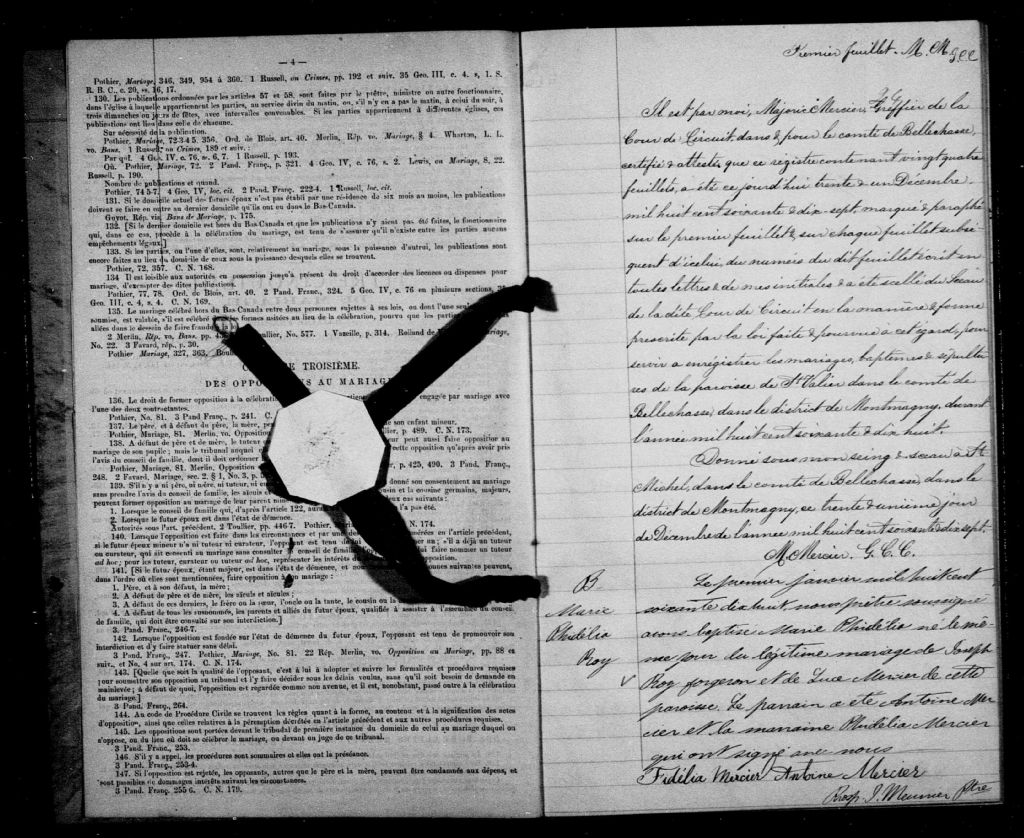 — 4 —
Pothier, Mariage, 346, 349, 954 à 360. 1 Russell, on Crimes, pp. 192 et suiv. 35 Geo. III, c. 4. s, 1. S.
R. B. C., c. 20, ss. 16, 17.
130. Les publications ordonnées par les articles 57 et 58, sont faites par le prêtre, ministre ou autre fonctionnaire,
dans l'église à laquelle appartiennent les parties, au service divin du matin, ou, s'il n'y en a pas le matin, à celui du soir, à
trois dimanches ou jours de fêtes, avec intervalles convenables. Si les parties appartiennent à différentes églises, ces
publications ont lieu dans celle de chacune.
Sur nécessité de la publication.
Pothier, Mariage, 72-3-4-5. 356. Ord. de Blois, art. 40. Merlin, Rép. vo. Mariage, § 4. Wharton, L. L.
vo. Bans. 1 Russell, on Crimes, 189 et suiv. :
Par qui. 4 Geo. IV, c. 76, ss. 6, 7. 1 Russell, p. 193.
Où. Pothier, Mariage, 72. 2 Pand. Franç., p. 321. 4 Geo. IV, c. 76, s. 2. Lewis, on Mariage, 8, 22.
Russell, p. 190.
Nombre de publications et quand.
Pothier, 74-5-7. 4 Geo. IV, loc. cit. 2 Pand. Franç., 222-4. 1 Russell, loc. cit.
131. Si le domicile actuel des futurs époux n'est pas établi par une résidence de six mois au moins, les publications
doivent se faire en outre au dernier domicile qu'ils ont eu dans le Bas-Canada.
Guyot, Rép. vis, Bans de Mariage, p. 175.
132. [Si le dernier domicile est hors du Bas-Canada et que les publications n'y aient pas été faites, le fonctionnaire
qui, dans ce cas, procède à la célébration du mariage, est tenu de s'assurer qu'il n'existe entre les parties aucuns
empêchements légaux.]
133. Si les parties, ou l'une d'elles, sont, relativement au mariage, sous la puissance d'autrui, les publications sont
encore faites au lieu du domicile de ceux sous la puissance desquels elles se trouvent.
Pothier, 72, 357. C. N. 168.
134 Il est loisible aux autorités en possession jusqu'à présent du droit d'accorder des licences ou dispenses pour
mariage, d'exempter des dites publications.
Pothier, 77, 78. Ord. de Blois, art. 40. 2 Pand. Franç., 324. 5 Geo. IV, c. 76 en plusieurs sections,
Geo. III, c. 4, s. 4. C. N. 169.
135. Le mariage célébré hors du Bas-Canada entre deux personnes sujettes à ses lois, ou dont l'une seule
soumise, est valide, s'il est célébré formes usitées au lieu de la célébration, pourvu que les parties
allées dans le dessein de faire fraude
2 Merlin, Rép. vo. Bans. pp. ullier, No. 577. 1 Vazeille, p. 314. Rolland de ariage,
No. 22. 3 Favard, rép., p. 30.
Pothier Mariage, 327, 363.
E TROISIÈME.
DES OPPO NS AU MARIAG
136. Le droit de former opposition à la célébrati engagée par mariage avec
l'une des deux contractantes.
Pothier, No. 81. 3 Pand Franç., p. 241. C.
137. Le père, et à défaut du père, la mère, pe son enfant mineur.
Pothier, Mariage, 81. Merlin, vo. Opposition llier, p. 489. C. N. 173.
138. A défaut de père et de mère, le tuteur ur peut aussi faire opposition au
mariage de son pupile ; mais le tribunal auquel cette opposition qu'après avoir pris
l'avis du conseil de famille, dont il doit ordonner
Pothier, Mariage, 81. Merlin, Opposition p. 425, 490. 3 Pand. Franç.,
248. 2 Favard, Mariage, sec. 2, § 1, No. 3, p.
139. S'il n'y a ni père, ni mère, ni tuteur, ni cu donné son consentement au mariage
sans prendre l'avis du conseil de famille, les aïeuls et et la cousine germains, majeurs,
peuvent former opposition au mariage de leur parent mine ux cas suivants :
1. Lorsque le conseil de famille qui, d'après l'article 122, aurait l'a pas été.
2. Lorsque le futur époux est dans l'état de démence.
Autorités sous l'art. précédent. 2 Toullier, pp. 446-7. Pothier, N. 174.
140. Lorsque l'opposition est faite dans les circonstances et par une érés en l'article précédent,
si le futur époux mineur n'a ni tuteur ni curateur, l'opposant est tenu de un ; s'il a déjà un tuteur
ou curateur, qui ait consenti au mariage sans consulter conseil de famille, faire nommer un tuteur
ad hoc ; pour les tuteur, curateur ou tuteur ad hoc, représenter les intérêts
141. [Si le futur époux, étant majeur, est dans l'état de démence, et non onnes suivantes peuvent,
dans l'ordre où elles sont mentionnées, faire opposition à son mariage :
1. Père, et à son défaut, la mère ;
2. A défaut de père et de mère, les aïeuls et aïeules ;
3. A défaut de ces derniers, le frère ou la sœur, l'oncle ou la tante, le cousin ou la cousi
4. A défaut de tous les susnommés, les parents et alliés du futur époux, qualifiés à assister à l'assemblée du conseil
de famille, qui doit être consulté sur son interdiction.]
3. Pand. Franç., 246-7.
142. Lorsque l'opposition est fondée sur l'état de démence du futur époux, l'opposant est tenu de promouvoir son
interdiction et d'y faire statuer sans délai.
3 Pand. Franç., 247. Pothier, Mariage, No. 81. 22 Rép. Merlin, vo. Opposition au Mariage, pp. 88 et
suiv., et No. 4 sur art. 174. C. N. 174.
143. [Quelle que soit la qualité de l'opposant, c'est à lui à adopter et suivre les formalités et procédures requises
pour soumettre son opposition au tribunal et l'y faire décider sous les délais voulus, sans qu'il soit besoin de demande en
mainlevée ; à défaut de quoi, l'opposition est regardée comme non avenue, et il est, nonobstant, passé outre à la célébration
du mariage.]
3 Pand. Franç., 264.
144. Au code de Procédure Civile se trouvent les règles quant à la forme, au contenu et à la signification des actes
d'opposition, ainsi que celles relatives à la péremption décrétée en l'article précédent et aux autres procédures requises.
145. Les oppositions sont portées devant le tribunal de première instance du domicile de celui au mariage duquel on
s'oppose, ou du lieu où doit se célébrer le mariage, ou devant un juge de ce tribunal.
3 Pand. Franç., 253.
146. S'il y a appel, les procédures sont sommaires et elles ont la préséance.
3 Pand. Franç., 253-4.
147. Si l'opposition est rejetée, les opposants, autres que le père et la mère, peuvent être condamnés aux dépens, et
sont passibles de dommages intérêts suivant les circonstances.
3 Pand. Franç. 255 6. C. N. 179.
Premier feuillet. M. M. gcc
Il est par moi, Majoric Mercier, Greffier de la
Cour de Circuit, dans & pour le comté de Bellechasse,
certifié & attesté, que ce registre contenant vingt quatre
feuillets, a été ce jourd'hui trente & un Décembre
mil huit cent soixante & dix-sept, marqué & paraphé
sur le premier feuillet & sur chaque feuillet subsé
quent d'icelui du numéro du dit feuillet écrit en
toutes lettres & de mes initiales & a été scellé du Sceau
de la dite Cour de Circuit en la manière & forme
prescrite par la loi faite & pourvue à cet égard, pour
servir à enregistrer les mariages, baptêmes & sépultu
res de la paroisse de St Valier dans le comté de
Bellechasse, dans le district de Montmagny, durant
l'année mil huit cent soixante & dix huit.
Donné sous mon seing & sceau à St
Michel, dans le comté de Bellechasse, dans le
district de Montmagny, ce trente & unième jour
de Décembre de l'année mil huit cent soixante & dix sept.
M. Mercier. G. C. C.
B
Marie
Phidélia
Roy
Le premier janvier mil huit cent
soixante dix huit, nous prêtre soussigné
avons baptisé Marie Phidelia né le mê
me jour du légitime mariage de Joseph
Roy forgeron et de Luce Mercier de cette
paroisse. Le parrain a été Antoine Mer
cier et la marraine Phidelia Mercier
qui ont signé avec nous
Fidélia Mercier Antoine Mercier
J. Meunier Ptre